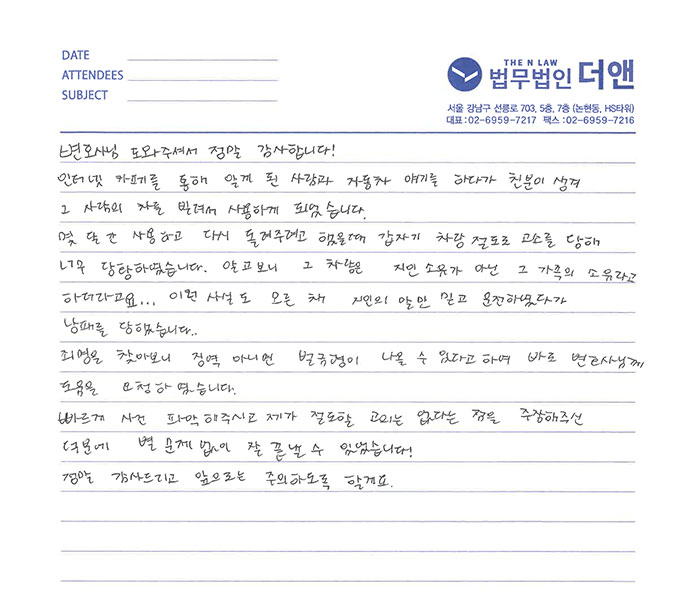 DATE
ATTENDEES
SUBJECT
THE N LAW
법무법인 더앤
서울 강남구 선릉로 703, 5층, 7층 (논현동, HS타워)
대표 : 02-6959-7217 팩스 : 02-6959-7216
변호사님 도와주셔서 정말 감사합니다!
인터넷 카페를 통해 알게 된 사람과 자동차 얘기를 하다가 친분이 생겨
그 사람의 차를 빌려서 사용하게 되었습니다.
몇 달 간 사용하고 다시 돌려주려고 했을때 갑자기 차량 절도로 고소를 당해
너무 당황하였습니다. 알고보니 그 차량은 지인 소유가 아닌 그 가족의 소유라고
하더라고요... 이런 사실도 모른 채 지인의 말만 믿고 운전하였다가
낭패를 당했습니다..
죄명을 찾아보니 징역 아니면 벌금형이 나올 수 있다고 하여 바로 변호사님께
도움을 요청하였습니다.
빠르게 사건 파악해주시고 제가 절도할 고의는 없다는 점을 주장해주신
덕분에 별 문제없이 잘 끝낼 수 있었습니다!
정말 감사드리고 앞으로는 주의하도록 할게요.